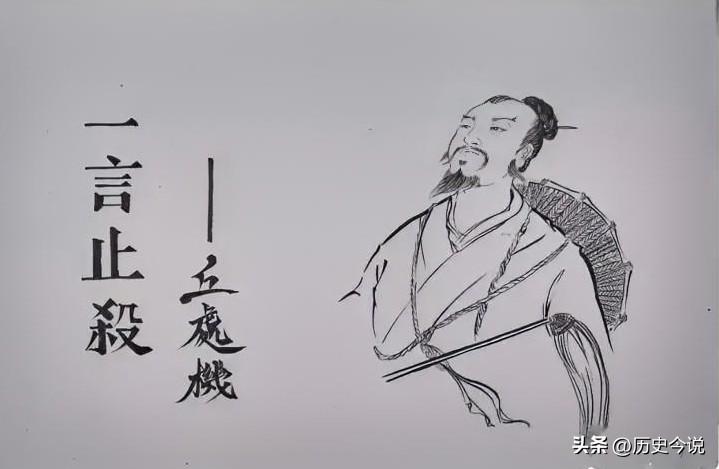 一言止殺
——丘處機
头条 @历史今说